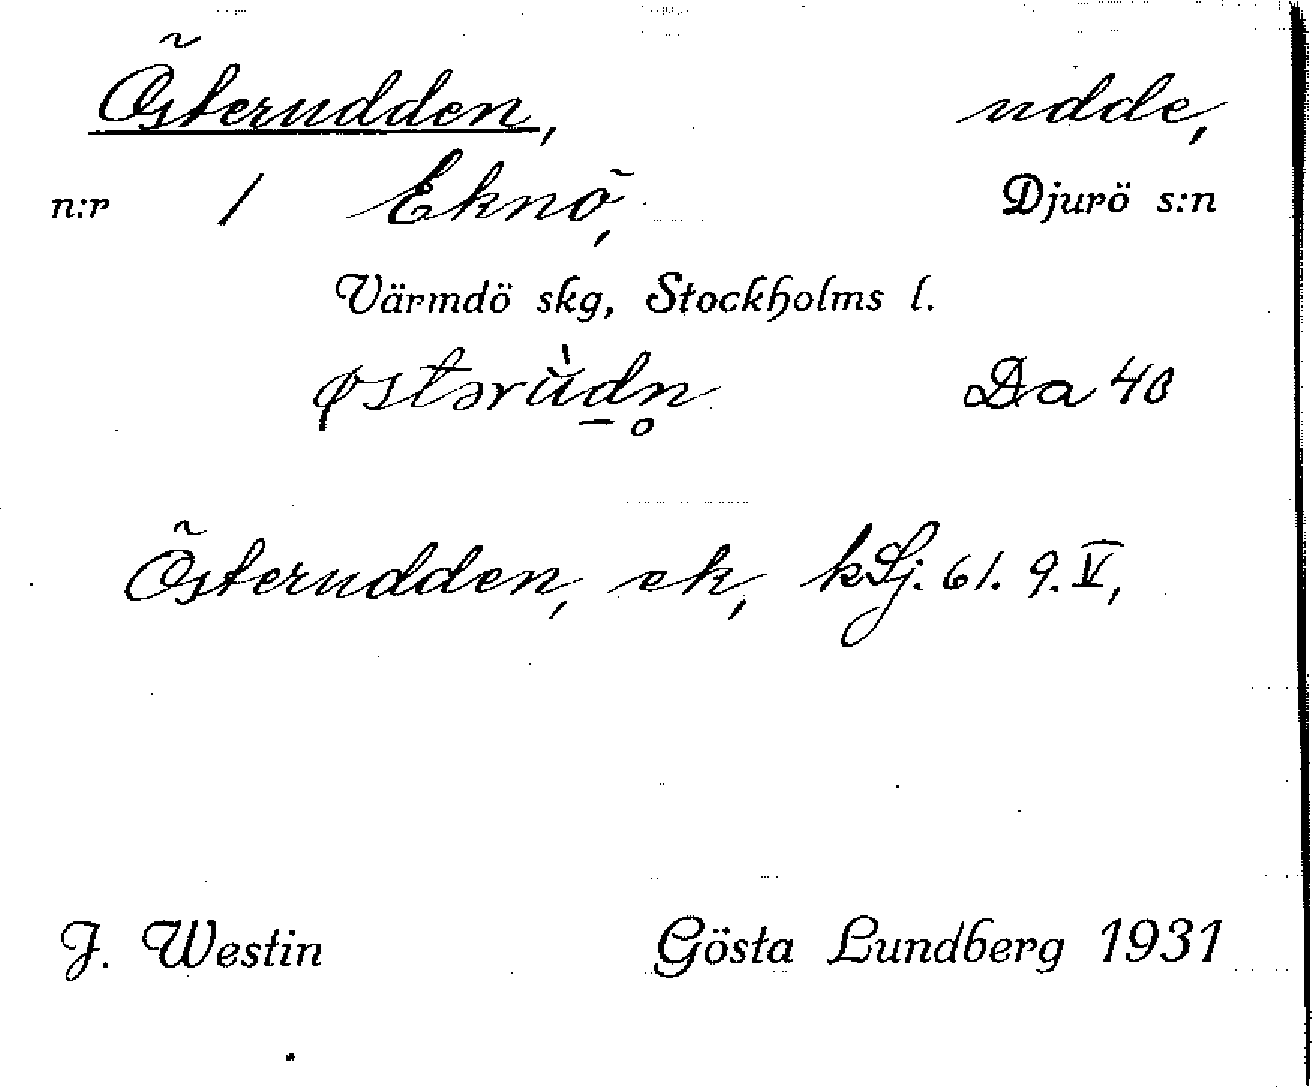 Österudden, udde,
n:r 1 Eknö, Djurö s:n
Värmdö skg, Stockholms l.
østərùdn̥ Da 40
Österudden, ek, kSj. 61. 9. V,
J. Westin Gösta Lundberg 1931